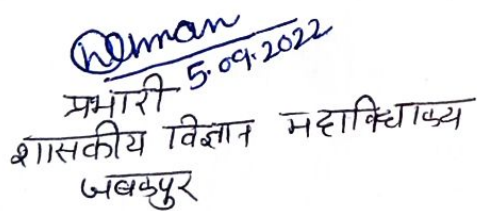 5.09.2022
प्रभारी
शासकीय विज्ञान महाविद्यालय
जबलपुर